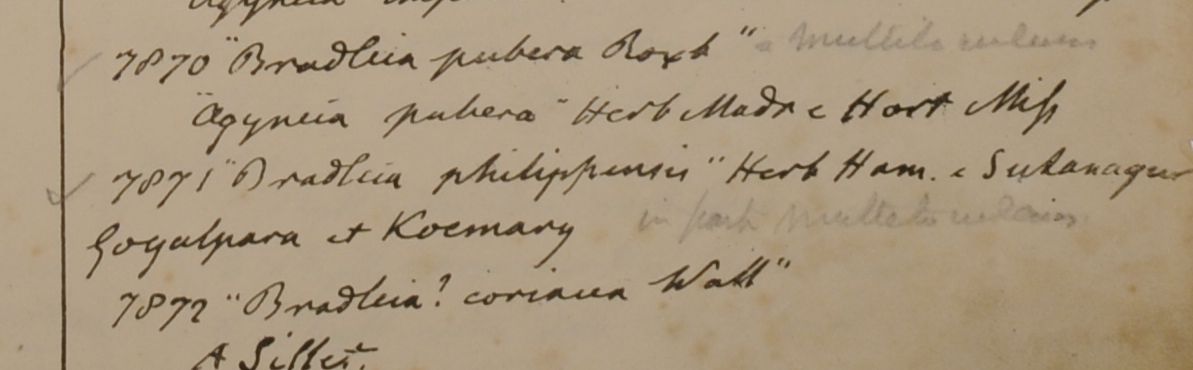 7870 "Bradleia pubera Roxb" = multilocularis
"Agyneia pubera" Herb Madr e Hort Miss
7871 "Bradleia philippensis" Herb Ham. e Sukanagur
Goyalpara et Koemary in part multilocularis
7872 "Bradleia? coriacea Wall"
A Sillet.